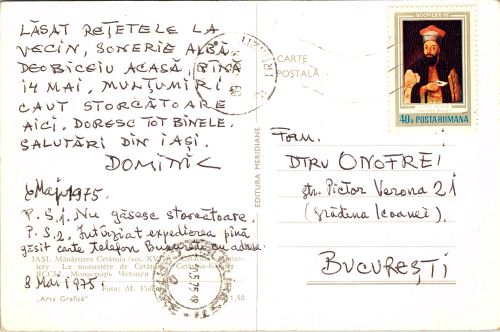 LĂSAT REȚETELE LA
VECIN, SONERIE ALBĂ.
DEOBICEIU ACASĂ, PÎNĂ
14 MAI, MULȚUMIRI
CAUT STORCĂTOARE
AICI. DORESC TOT BINELE.
SALUTĂRI DIN IAȘI.
DOMINIC
6 Mai 1975.
P.S.1. Nu găsesc storcătoare.
P.S.2. Întîrziat expedierea pînă
găsit carte telefon București cu adrese.
IAȘI. Mănăstirea Cetățuia (sec.
Le monastère de
8 Mai 1975.
Foto: M.
"Arta Grafică"
1,50
EDITURA MERIDIANE
CARTE
POȘTALĂ
SOCFILEX III
40b POSTA ROMANA
Fam.
DTRU ONOFREI
str. Pictor Verona 21
(grădina Icoanei).
BUCUREȘTI